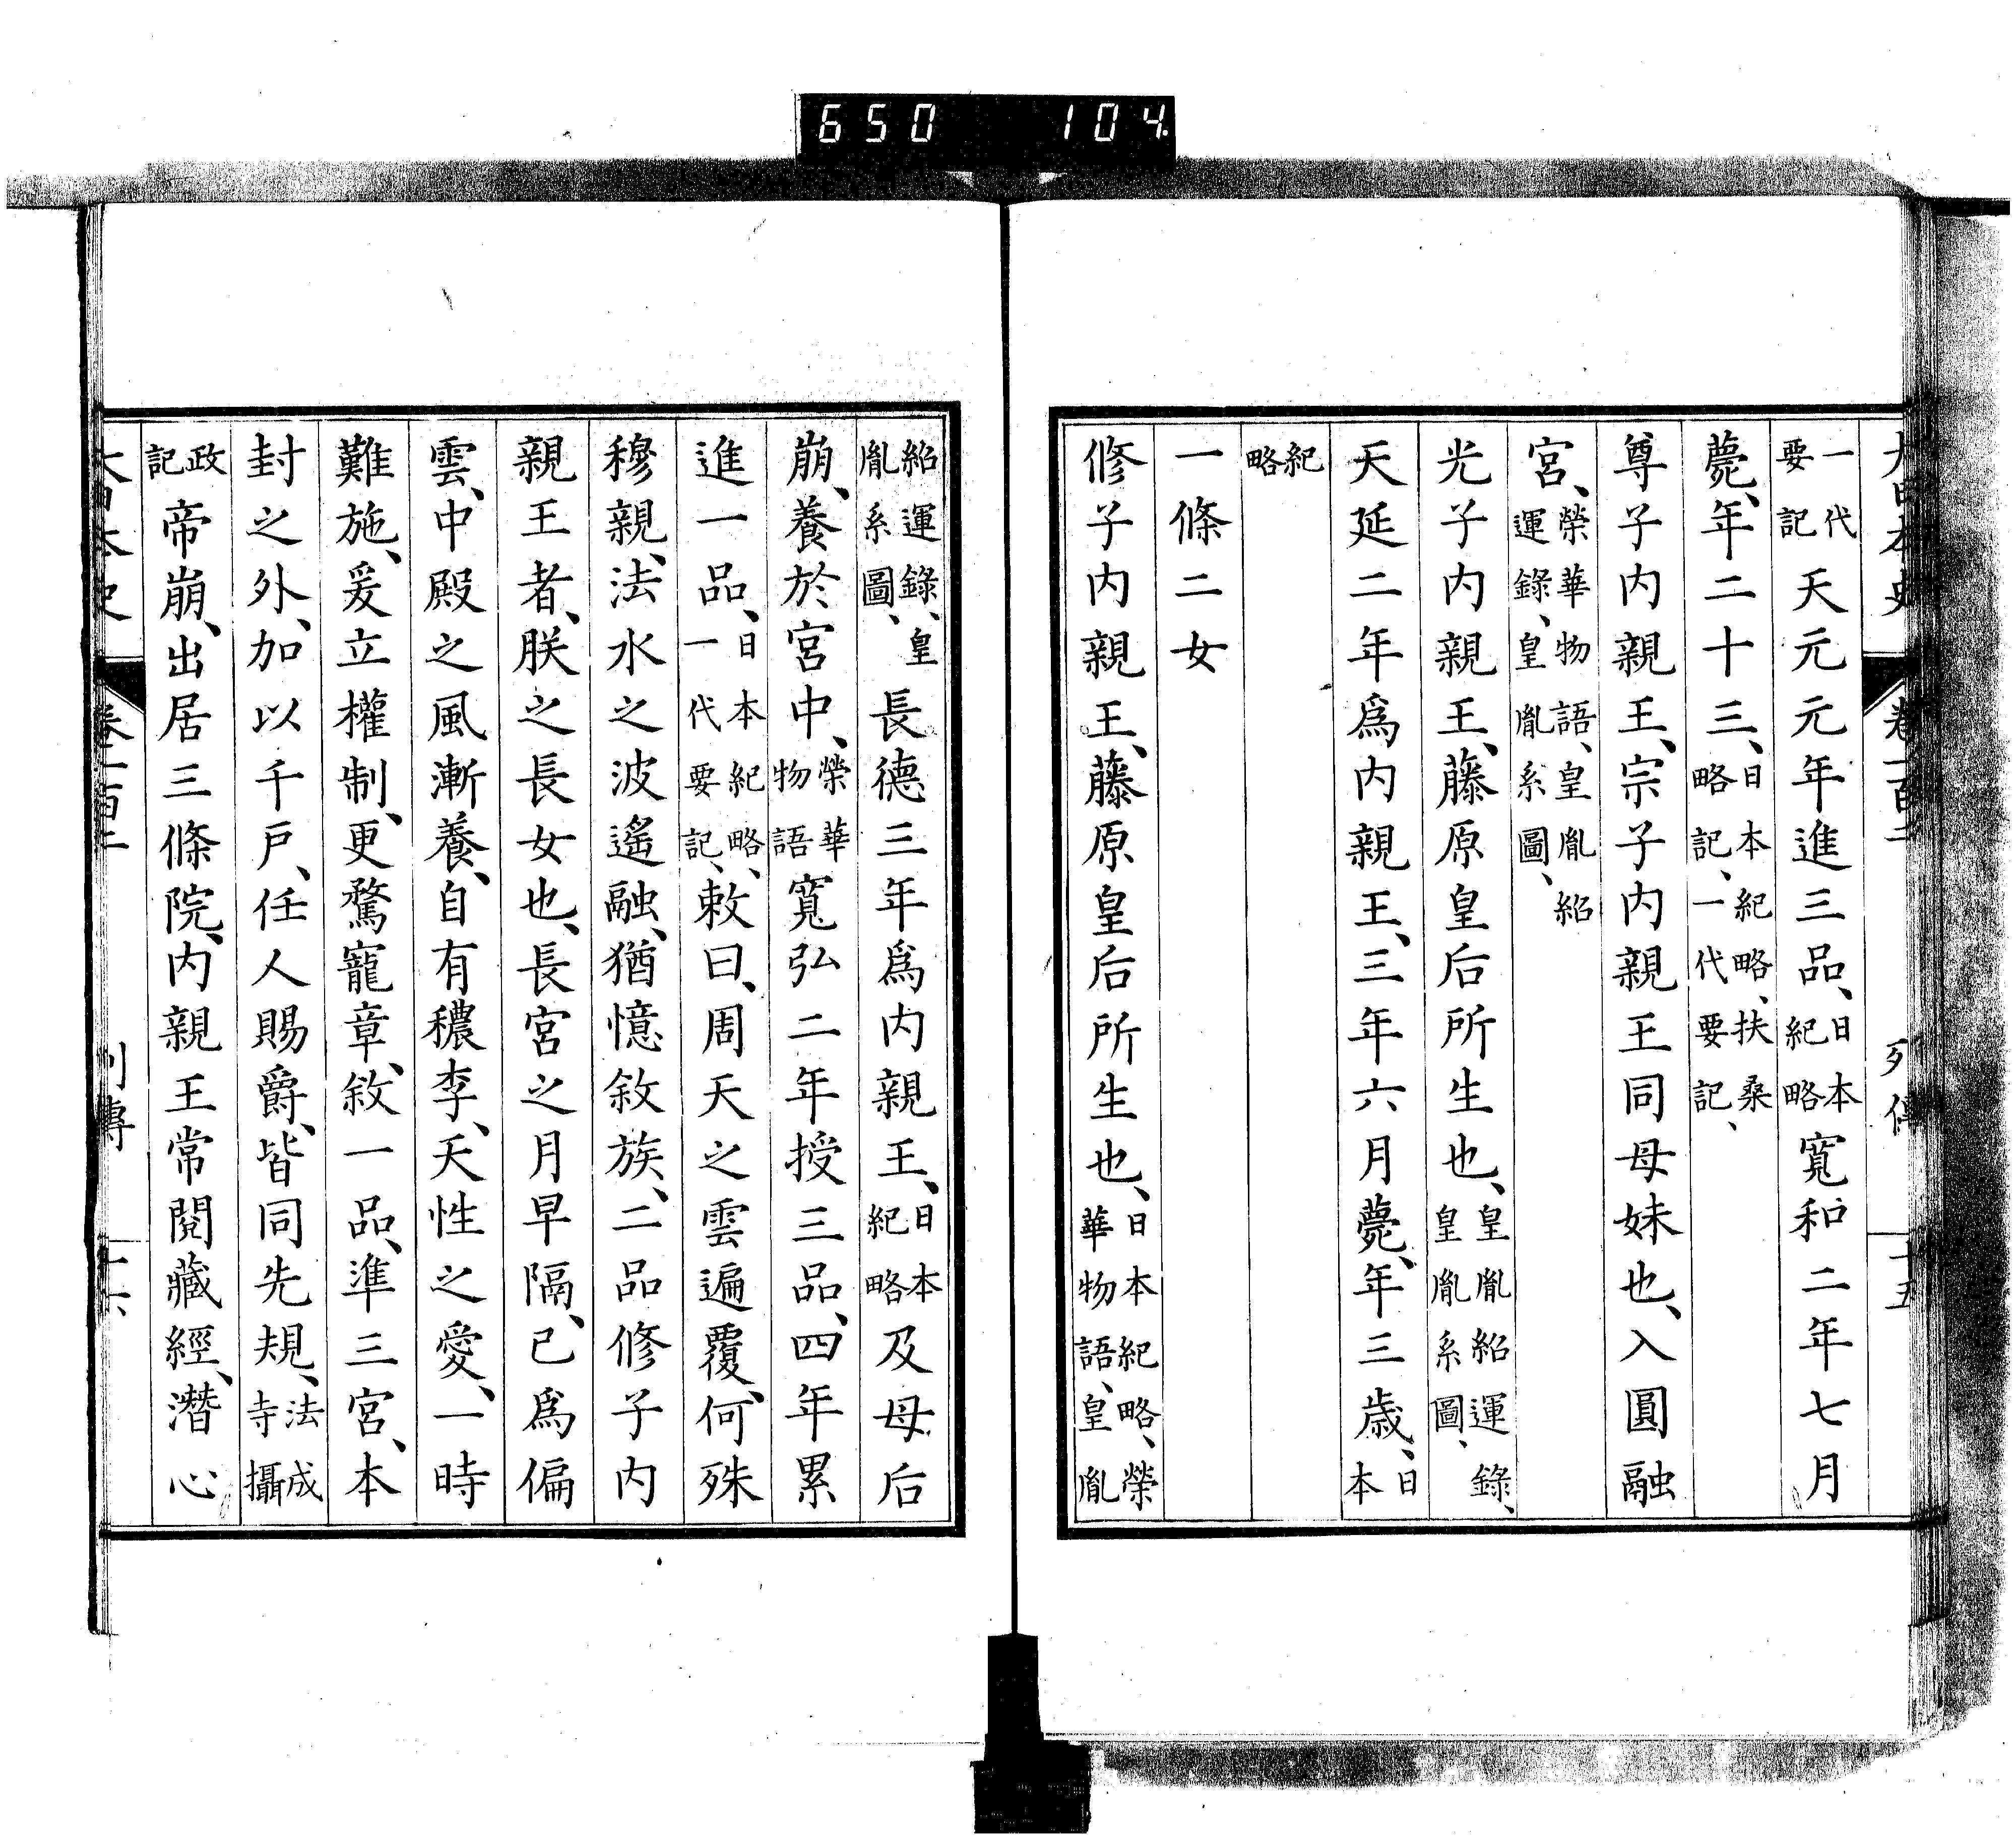 650 104
大日本史 卷一百二 列傳 十五
一代要記天元元年進三品、日本紀略寬和二年七月
薨、年二十三、日本紀略、扶桑略記、一代要記、
尊子内親王、宗子内親王同母妹也、入圓融
宮、榮華物語、皇胤紹運錄、皇胤系圖、
光子内親王、藤原皇后所生也、皇胤紹運錄、皇胤系圖、
天延二年爲内親王、三年六月薨、年三歲、日本
紀略
一條二女
修子内親王、藤原皇后所生也、日本紀略、榮華物語、皇胤
紹運錄、皇胤系圖、長德三年爲内親王、日本紀略及母后
崩、養於宮中、榮華物語寬弘二年授三品、四年累
進一品、日本紀略、一代要記、敕曰、周天之雲遍覆、何殊
穆親、法水之波遙融、猶憶敘族、二品修子内
親王者、朕之長女也、長宮之月早隔、已爲偏
雲、中殿之風漸養、自有穠李、天性之愛、一時
難施、爰立權制、更騖寵章、敘一品、準三宮、本
封之外、加以千戶、任人賜爵、皆同先規、法成寺攝
政記帝崩、出居三條院、内親王常閱藏經、潛心
大日本史 卷一百二 列傳 十六